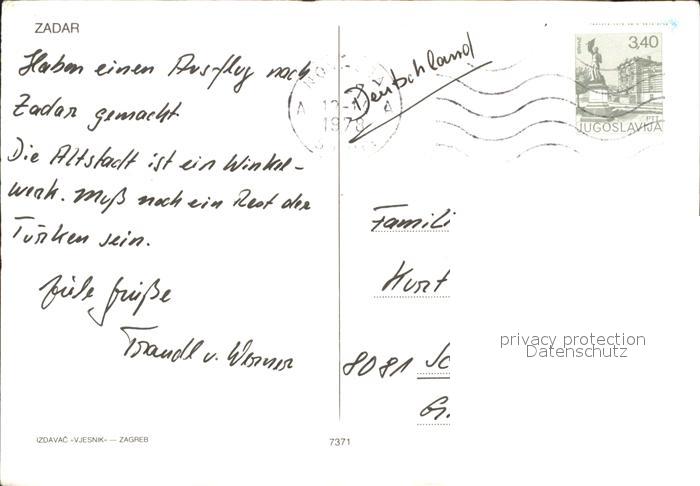 ZADAR
Haben einen Ausflug nach
Zadar gemacht.
Die Altstadt ist ein Winkel-
werk. Muß noch ein Rest der
Türken sein.
Viele Grüße
Traudl u. Werner
IZDAVAČ »VJESNIK« — ZAGREB
7371
Deutschland
1978
3,40
PTT
JUGOSLAVIJA
Famili
Kurt
8081 Sc
privacy protection
Datenschutz